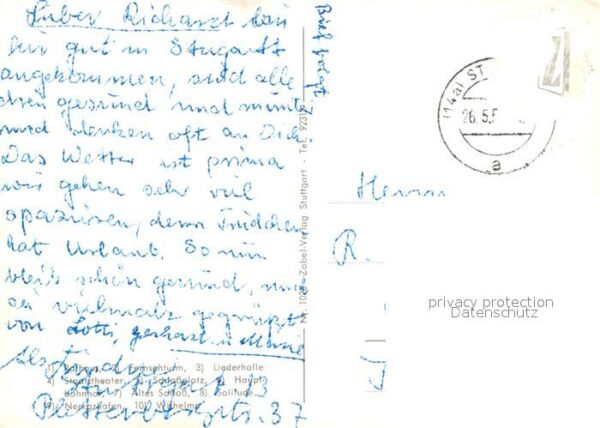 Lieber Richard! Sind
hir gut in Stugartt
angekommen, sind alle
gesund und munter
und denken oft an Dich.
Das Wetter ist prima
wir gehen sehr viel
spazieren, denn
hat Urlaub. So nun
bleib schön gesund, und
sei vielmals gegrüßt
von Lotti, Gerhard u
Brief folgt
Stuttgart 13
37
1) Rathaus, 2) Fernsehturm, 3) Liederhalle
4) Staatstheater, 5) Schloßplatz, 6) Haupt-
bahnhof, 7) Altes Schloß, 8) Solitude,
9) Neckarhafen, 10) Wilhelma
Zobel-Verlag Stuttgart - Tel. 923
(14a) ST
26. 5. 5
a
Herrn
R.
privacy protection
Datenschutz